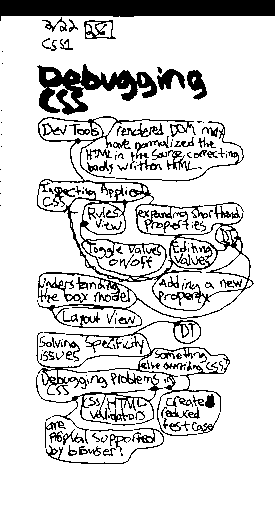 2/22 251
CSS1
Debugging
CSS
Dev Tools rendered DOM may
have normalized the
HTML in the source, correcting
badly written HTML.
Inspecting Applied
CSS
Rules
View
expanding Shorthand
Properties
Toggle Values
on/off
Editing
Values
DT
Understanding
the box model
Adding a new
Property
Layout View
DT
Solving Specificity
issues
Something
else overriding CSS?
Debugging Problems in
CSS/HTML
Validators
Create
reduced
test case
are
P&Val Supported
by browser?